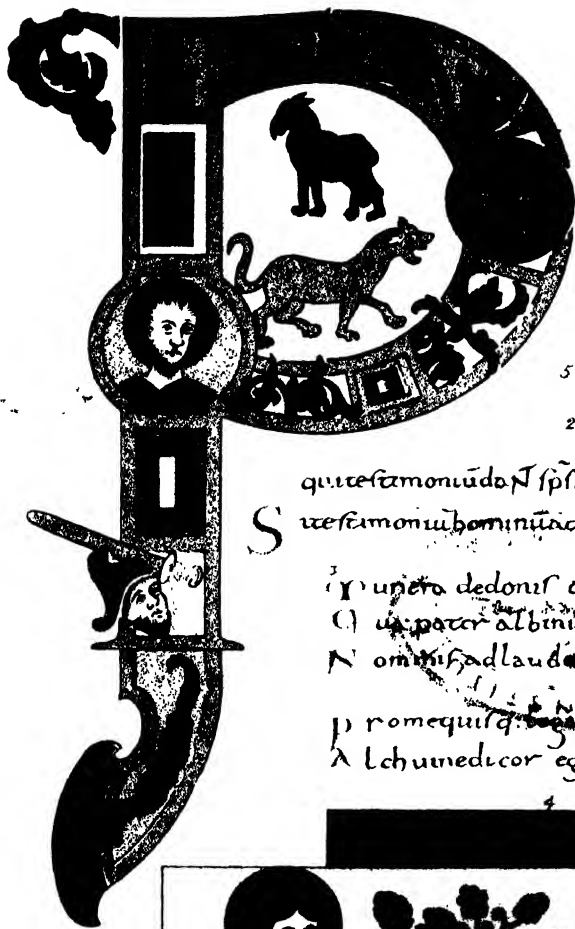 P
5
2
qui testimoniũ daɴ̃t sp̃s
Si testimoniũ hominũ ac
3
Munera de donis
Qua pater albini
Nominis ad laude
Pro me quisq:
Alchuine dicor eg
4